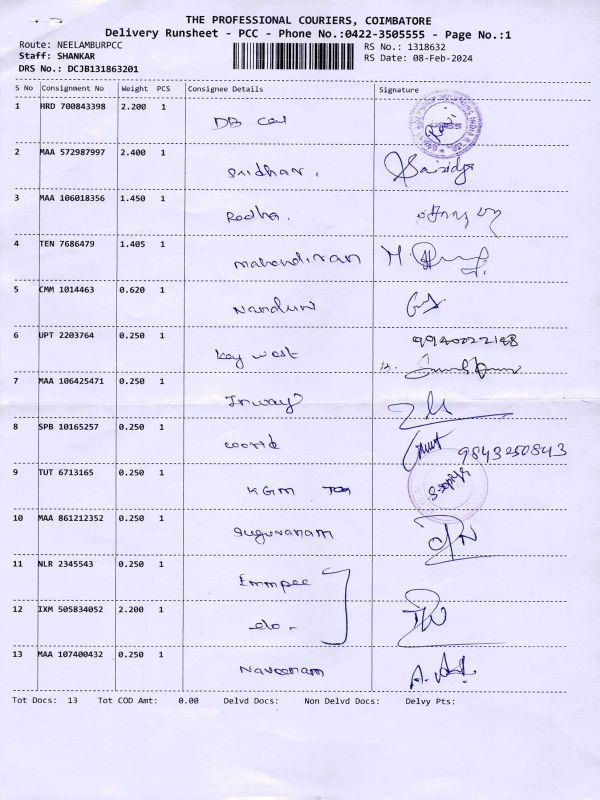 THE PROFESSIONAL COURIERS, COIMBATORE
Delivery Runsheet - PCC - Phone No.:0422-3505555 - Page No.:1
Route: NEELAMBURPCC
RS No.: 1318632
Staff: SHANKAR
RS Date: 08-Feb-2024
DRS No.: DCJB131863201
S No Consignment No Weight PCS Consignee Details Signature
1 HRD 700843398 2.200 1
DB
2 MAA 572987997 2.400 1
Sridhar.
3 MAA 106018356 1.450 1
Radha.
4 TEN 7686479 1.405 1
Mahendiran
5 CMM 1014463 0.620 1
6 UPT 2203764 0.250 1
9940022188
Key west
7 MAA 106425471 0.250 1
Inway
8 SPB 10165257 0.250 1
9843250843
9 TUT 6713165 0.250 1
KGM
10 MAA 861212352 0.250 1
Suguvanam
11 NLR 2345543 0.250 1
Emmpee
12 IXM 505834052 2.200 1
do -
13 MAA 107400432 0.250 1
Naveenam
Tot Docs: 13 Tot COD Amt: 0.00 Delvd Docs: Non Delvd Docs: Delvy Pts: